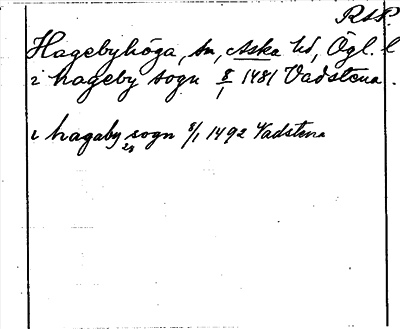 RAP.
Hagebyhöga, sn, Aska hd, Ögl. l
i hageby sogn 8/1 1481 Vadstena.
i hagaby sogn 8/1 1492 Vadstena